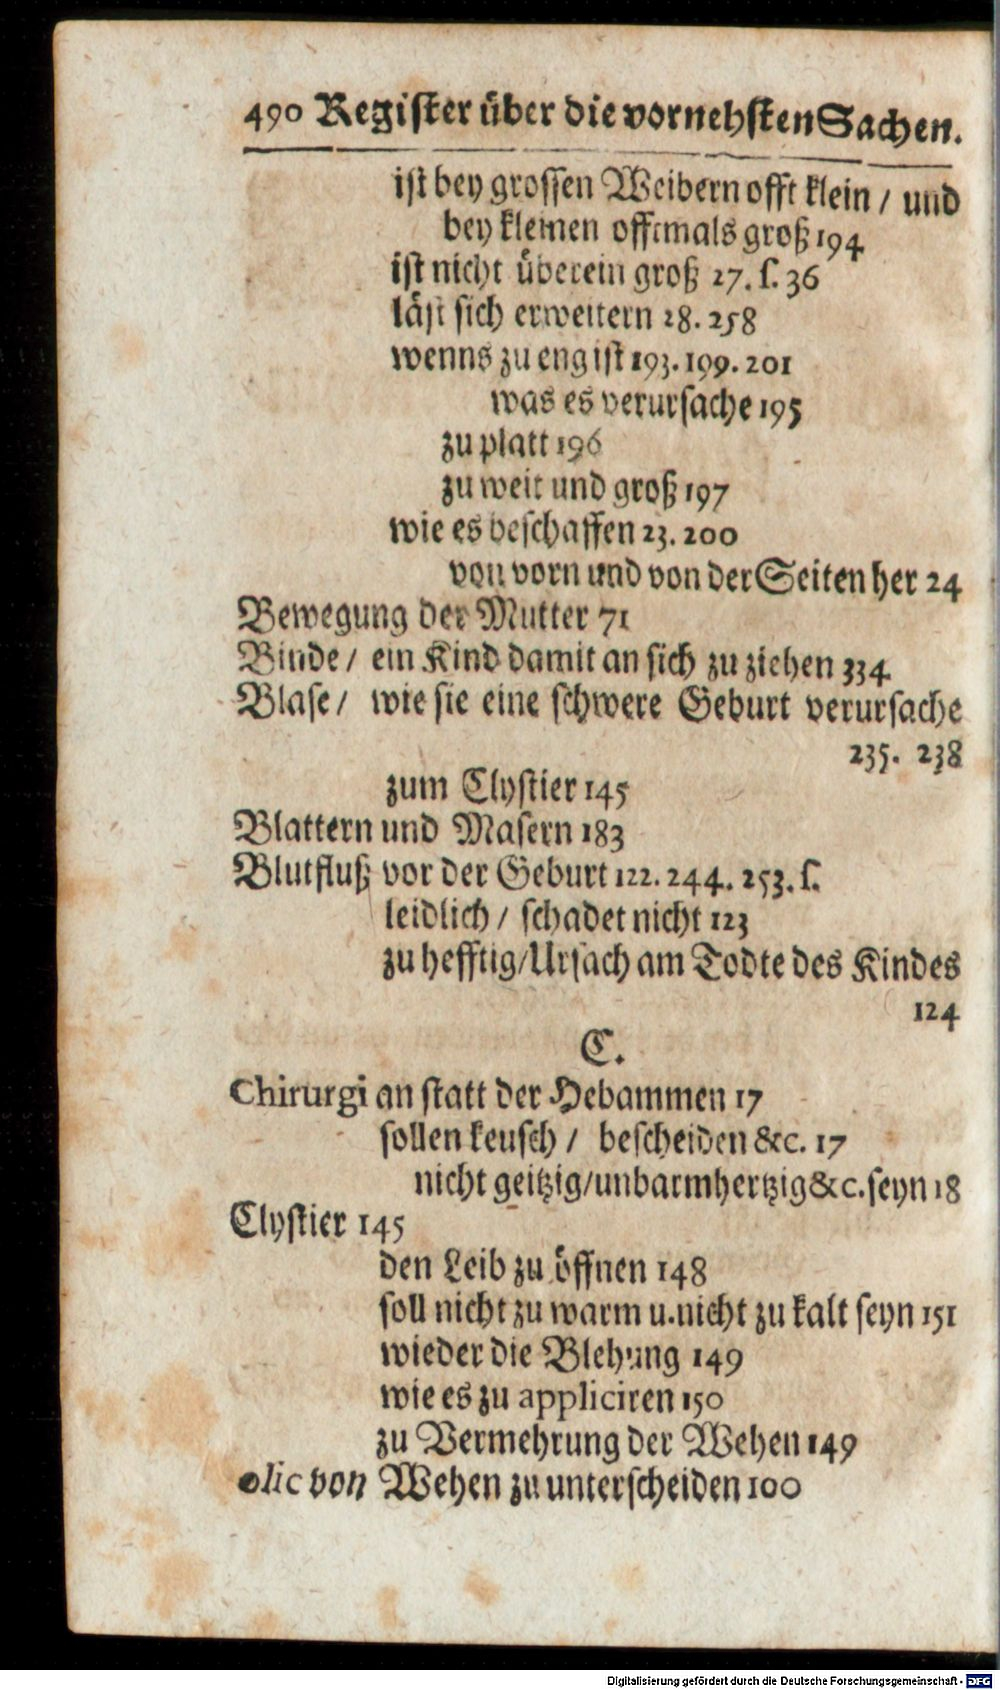 490 Register über die vornehsten Sachen.
ist bey grossen Weibern offt klein / und
bey kleinen offtmals groß 194
ist nicht überein groß 27. s. 36
läst sich erweitern 28. 258
wenns zu eng ist 193. 199. 201
was es verursache 195
zu platt 196
zu weit und groß 197
wie es beschaffen 23. 200
von vorn und von der Seiten her 24
Bewegung der Mutter 71
Binde / ein Kind damit an sich zu ziehen 334
Blase / wie sie eine schwere Geburt verursache
235. 238
zum Clystier 145
Blattern und Masern 183
Blutfluß vor der Geburt 122. 244. 253. s.
leidlich / schadet nicht 123
zu hefftig / Ursach am Todte des Kindes
124
C.
Chirurgi an statt der Hebammen 17
sollen keusch / bescheiden &c. 17
nicht geitzig / unbarmhertzig &c. seyn 18
Clystier 145
den Leib zu öffnen 148
soll nicht zu warm u. nicht zu kalt seyn 151
wieder die Blehung 149
wie es zu appliciren 150
zu Vermehrung der Wehen 149
olic von Wehen zu unterscheiden 100
Digitalisierung gefördert durch die Deutsche Forschungsgemeinschaft - DFG